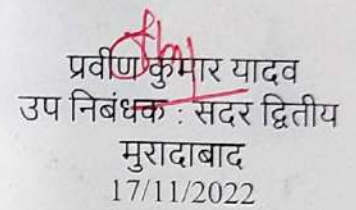 प्रवीण कुमार यादव
उप निबंधक : सदर द्वितीय
मुरादाबाद
17/11/2022